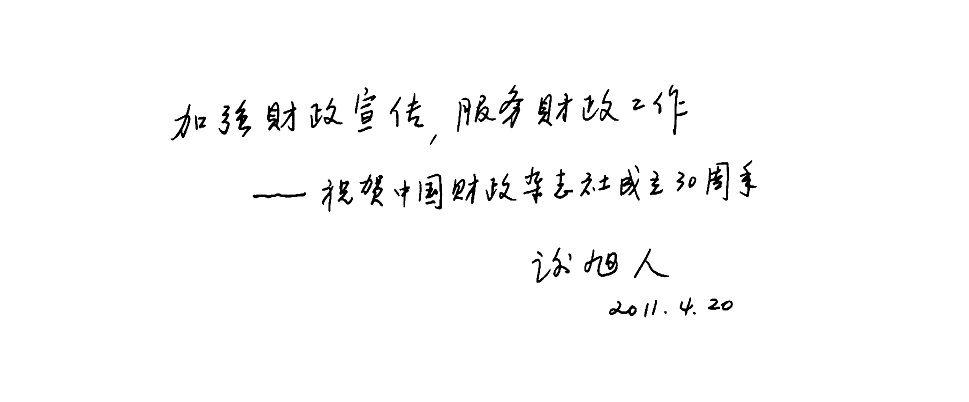 加强财政宣传,服务财政工作
——祝贺中国财政杂志社成立30周年
谢旭人
2011.4.20